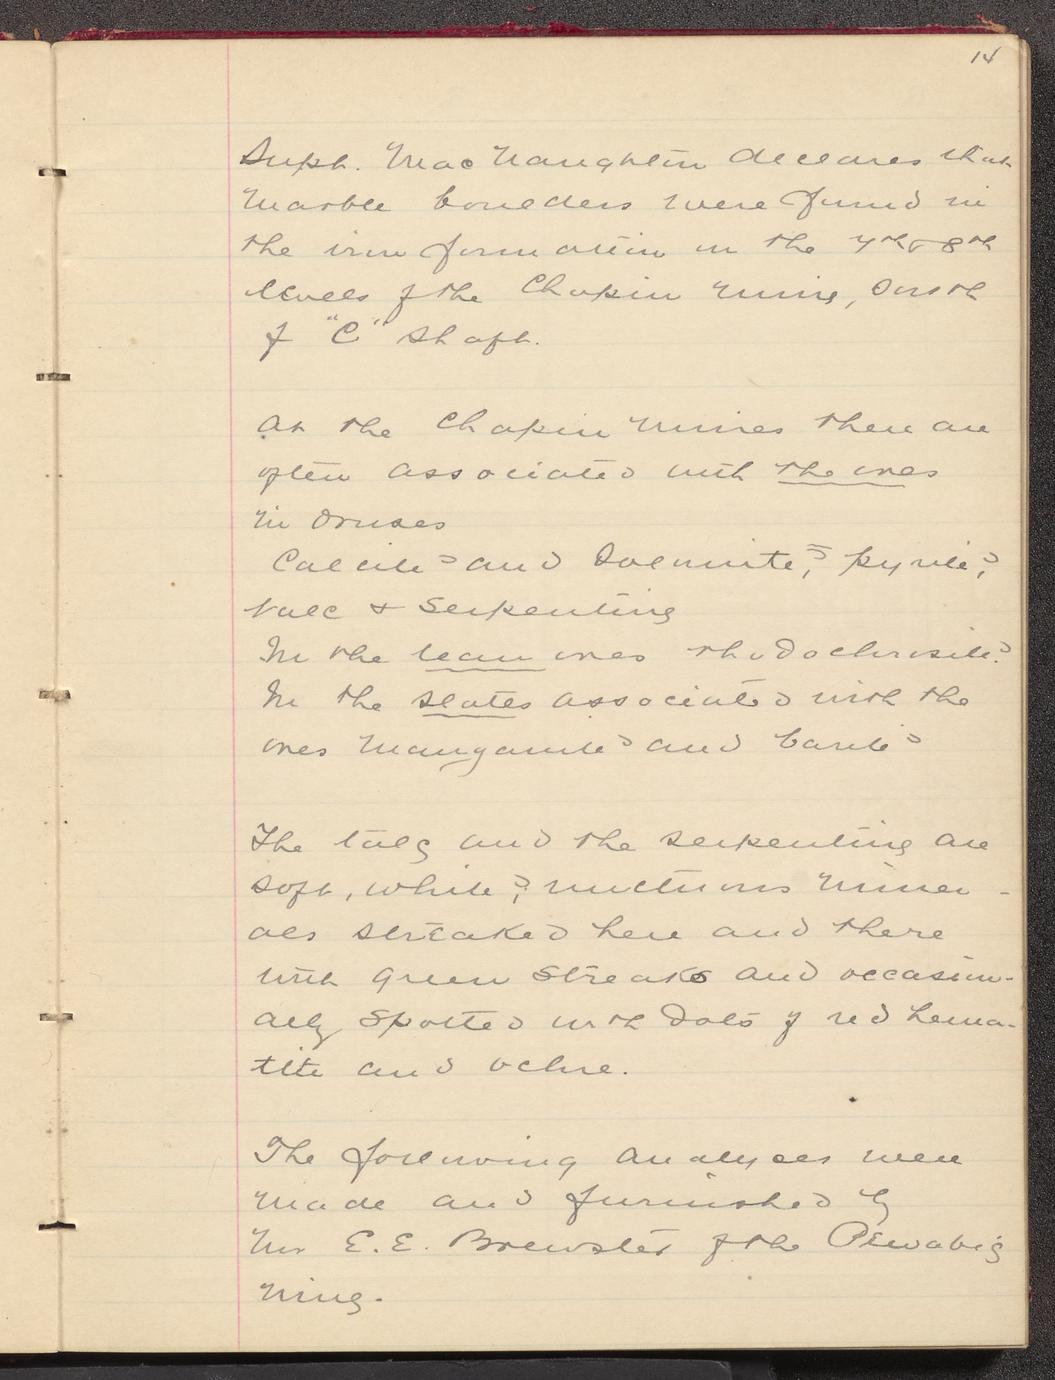 14
Supt. MacNaughton declares that
marble boulders were found in
the iron formation in the 7th & 8th
levels of the Chapin mine, South
of "C" Shaft.
At the Chapin mines there are
often associated with the ores
in druses
Calcite and Dolomite, pyrite,
talc & Serpentine
In the lean ores rhodochrosite.
In the slates associated with the
ores Manganite and barite
The talc and the serpentine are
soft, white, unctuous miner-
als streaked here and there
with green streaks and occasion-
ally spotted with dots of red hema-
tite and ochre.
The following analyses were
made and furnished by
Mr E.E. Brewster of the Pewabic
mine.